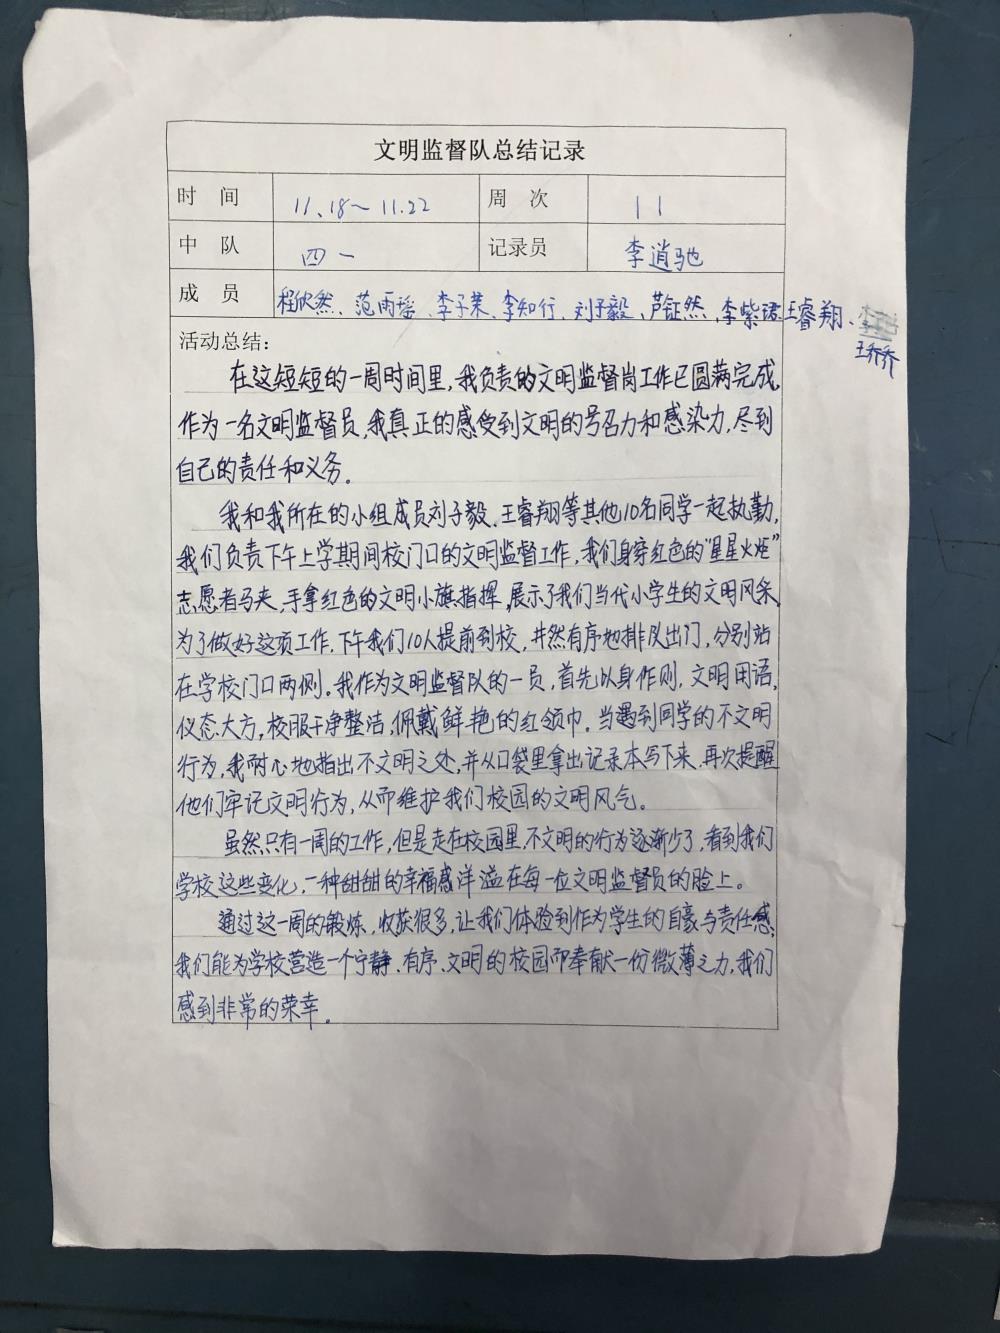 文明监督队总结记录
时 间 11.18～11.22 周 次 11
中 队 四一 记录员 李逍驰
成 员 程欣然、范雨瑶、李子茉、李知行、刘子毅、芦钲然,李紫珺王睿翔、
王乔乔
活动总结:
在这短短的一周时间里,我负责的文明监督岗工作已圆满完成,
作为一名文明监督员,我真正的感受到文明的号召力和感染力,尽到
自己的责任和义务。
我和我所在的小组成员刘子毅、王睿翔等其他10名同学一起执勤,
我们负责下午上学期间校门口的文明监督工作,我们身穿红色的“星星火炬”
志愿者马夹,手拿红色的文明小旗指挥,展示了我们当代小学生的文明风采
为了做好这项工作,下午我们10人提前到校,井然有序地排队出门,分别站
在学校门口两侧。我作为文明监督队的一员,首先以身作则,文明用语,
仪态大方,校服干净整洁,佩戴鲜艳的红领巾。当遇到同学的不文明
行为,我耐心地指出不文明之处,并从口袋里拿出记录本写下来,再次提醒
他们牢记文明行为,从而维护我们校园的文明风气。
虽然只有一周的工作,但是走在校园里,不文明的行为逐渐少了,看到我们
学校这些变化,一种甜甜的幸福感洋溢在每一位文明监督员的脸上。
通过这一周的锻炼,收获很多,让我们体验到作为学生的自豪与责任感,
我们能为学校营造一个宁静、有序、文明的校园而奉献一份微薄之力,我们
感到非常的荣幸。